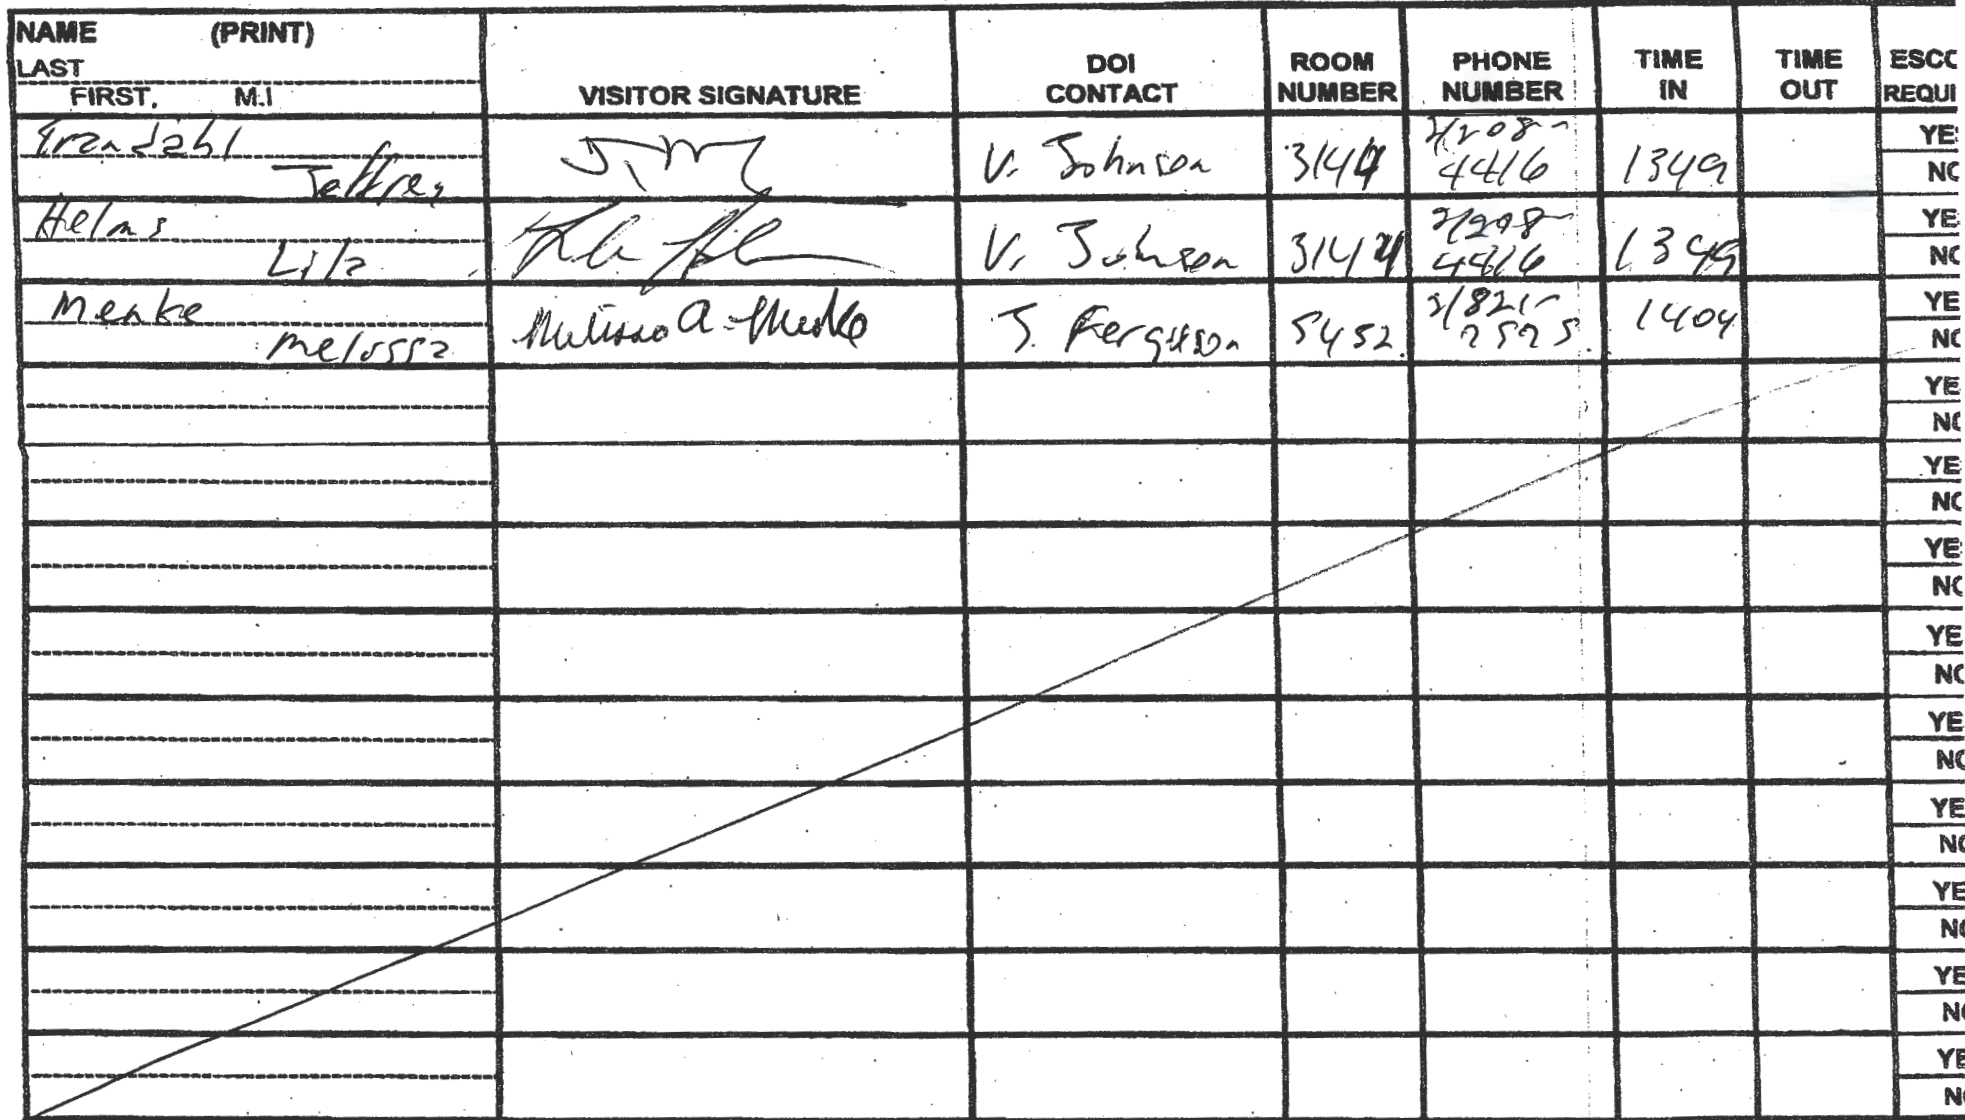 NAME (PRINT)
LAST
FIRST, M.I
VISITOR SIGNATURE
DOI CONTACT
ROOM NUMBER
PHONE NUMBER
TIME IN
TIME OUT
ESCC REQUI
Trandahl
Jeffrey
V. Johnson 3144 2/208-4416 1349
YES
NC
Helms
Lila
V. Johnson 3144 2/208-4416 1349
YE
NC
Menke
Melissa
Melissa A. Menke
J. Ferguson 5452 1404
YE
NC
YE
NC
YE
NC
YE
NC
YE
NC
YE
NC
YE
NC
YE
NC
YE
NC
YE
NC